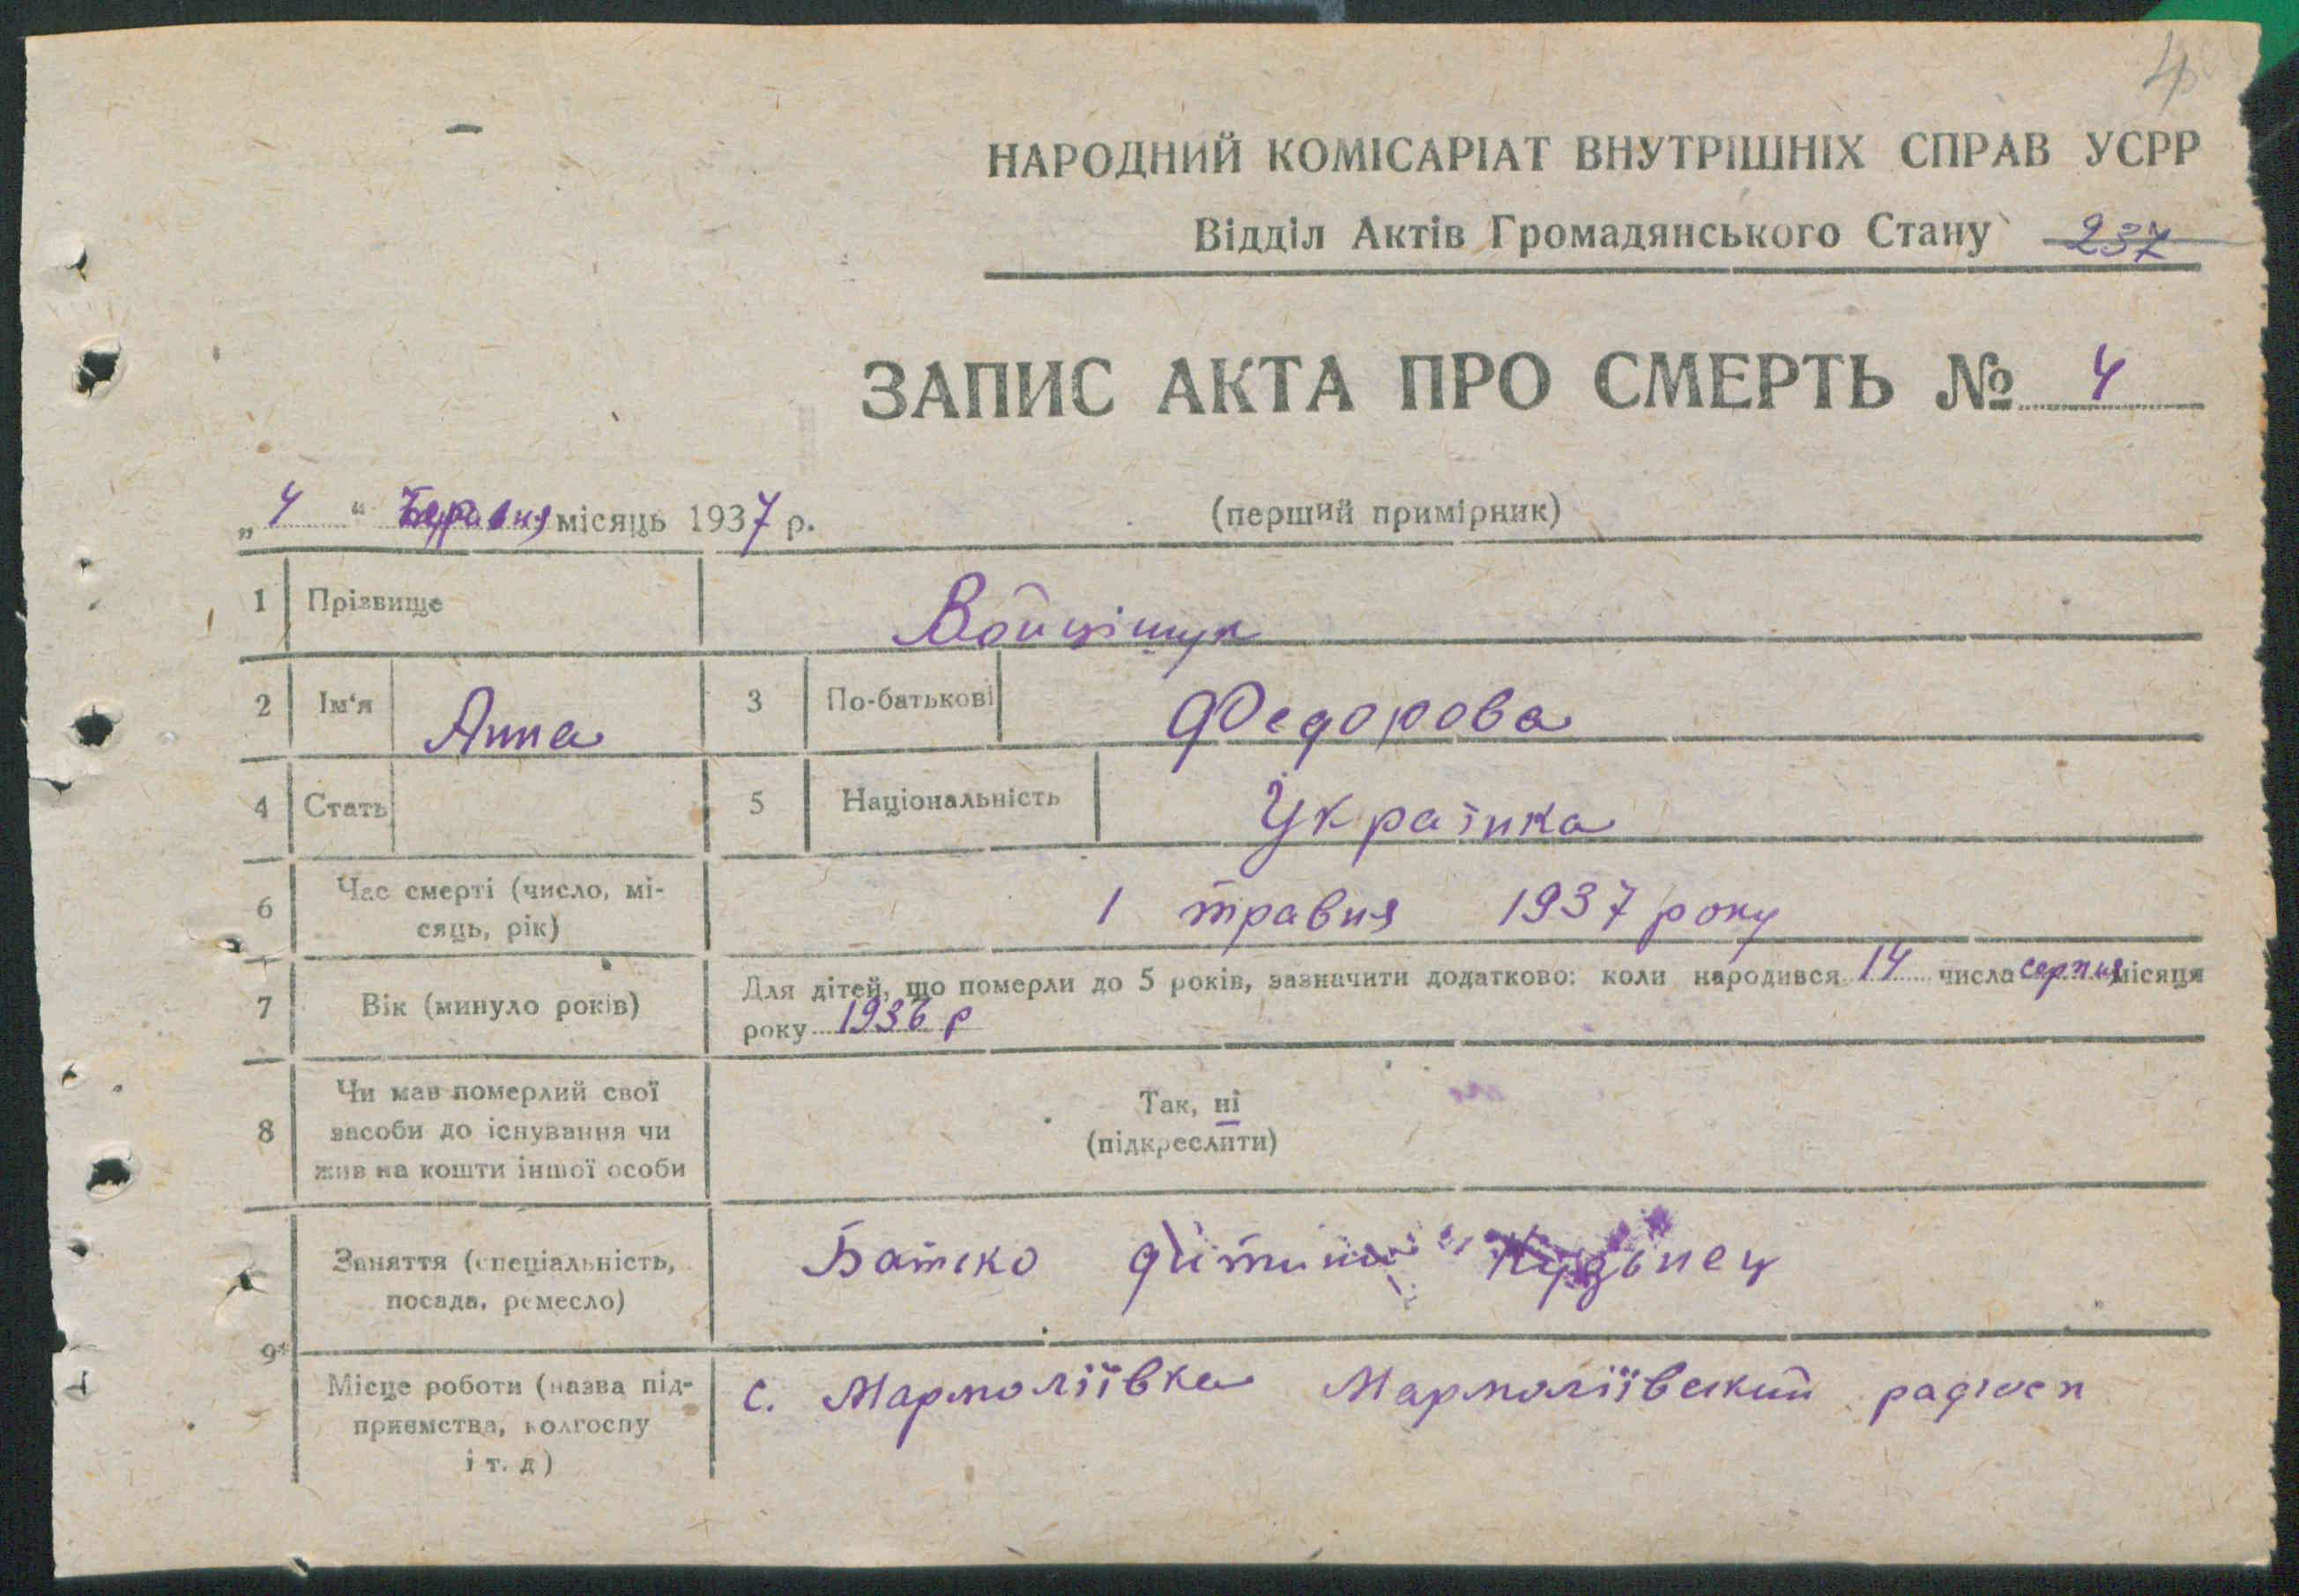 4
НАРОДНИЙ КОМІСАРІАТ ВНУТРІШНІХ СПРАВ УСРР
Відділ Актів Громадянського Стану 237
ЗАПИС АКТА ПРО СМЕРТЬ № 4
„ 4 “ місяць 1937 р. (перший примірник)
1 Прізвище Войціщук
2 Ім‘я Анна 3 По-батькові Федорова
4 Стать 5 Національність Українка
6 Час смерті (число, мі-
сяць, рік) 1 травня 1937 року
7 Вік (минуло років) Для дітей, що померли до 5 років, зазначити додатково: коли народився 14 числа серпня місяця
року 1936 р
8 Чи мав померлий свої
засоби до існування чи
жив на кошти іншої особи
Так, ні
(підкреслити)
9*
Заняття (спеціальність,
посада, ремесло) Батько дитини
Місце роботи (назва під-
приємства, колгоспу
і т. д) с. Мармоліївка Мармоліївський радгосп